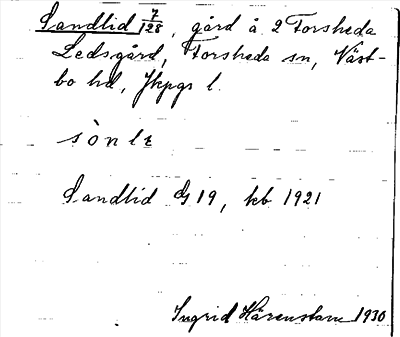 Sandlid 7/128, gård å 2 Forsheda
Ledsgård, Forsheda sn, Väst-
bo hd, Jkpgs l.
sònlɩ
Sandlid G 19, kb 1921
Ingrid Härenstam 1930